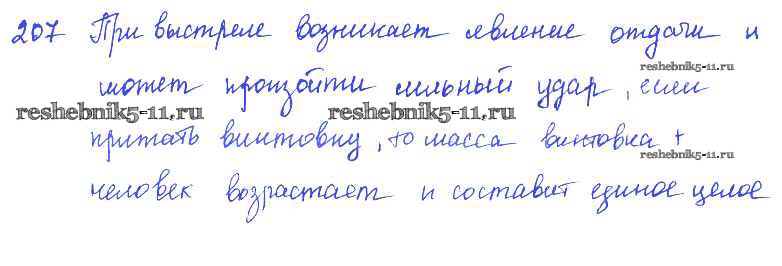 207 При выстреле возникает явление отдачи и
reshebnik5-11.ru
может произойти сильный удар, если
reshebnik5-11.ru reshebnik5-11.ru
прижать винтовку, то масса винтовка +
reshebnik5-11.ru
человек возрастает и составит единое целое